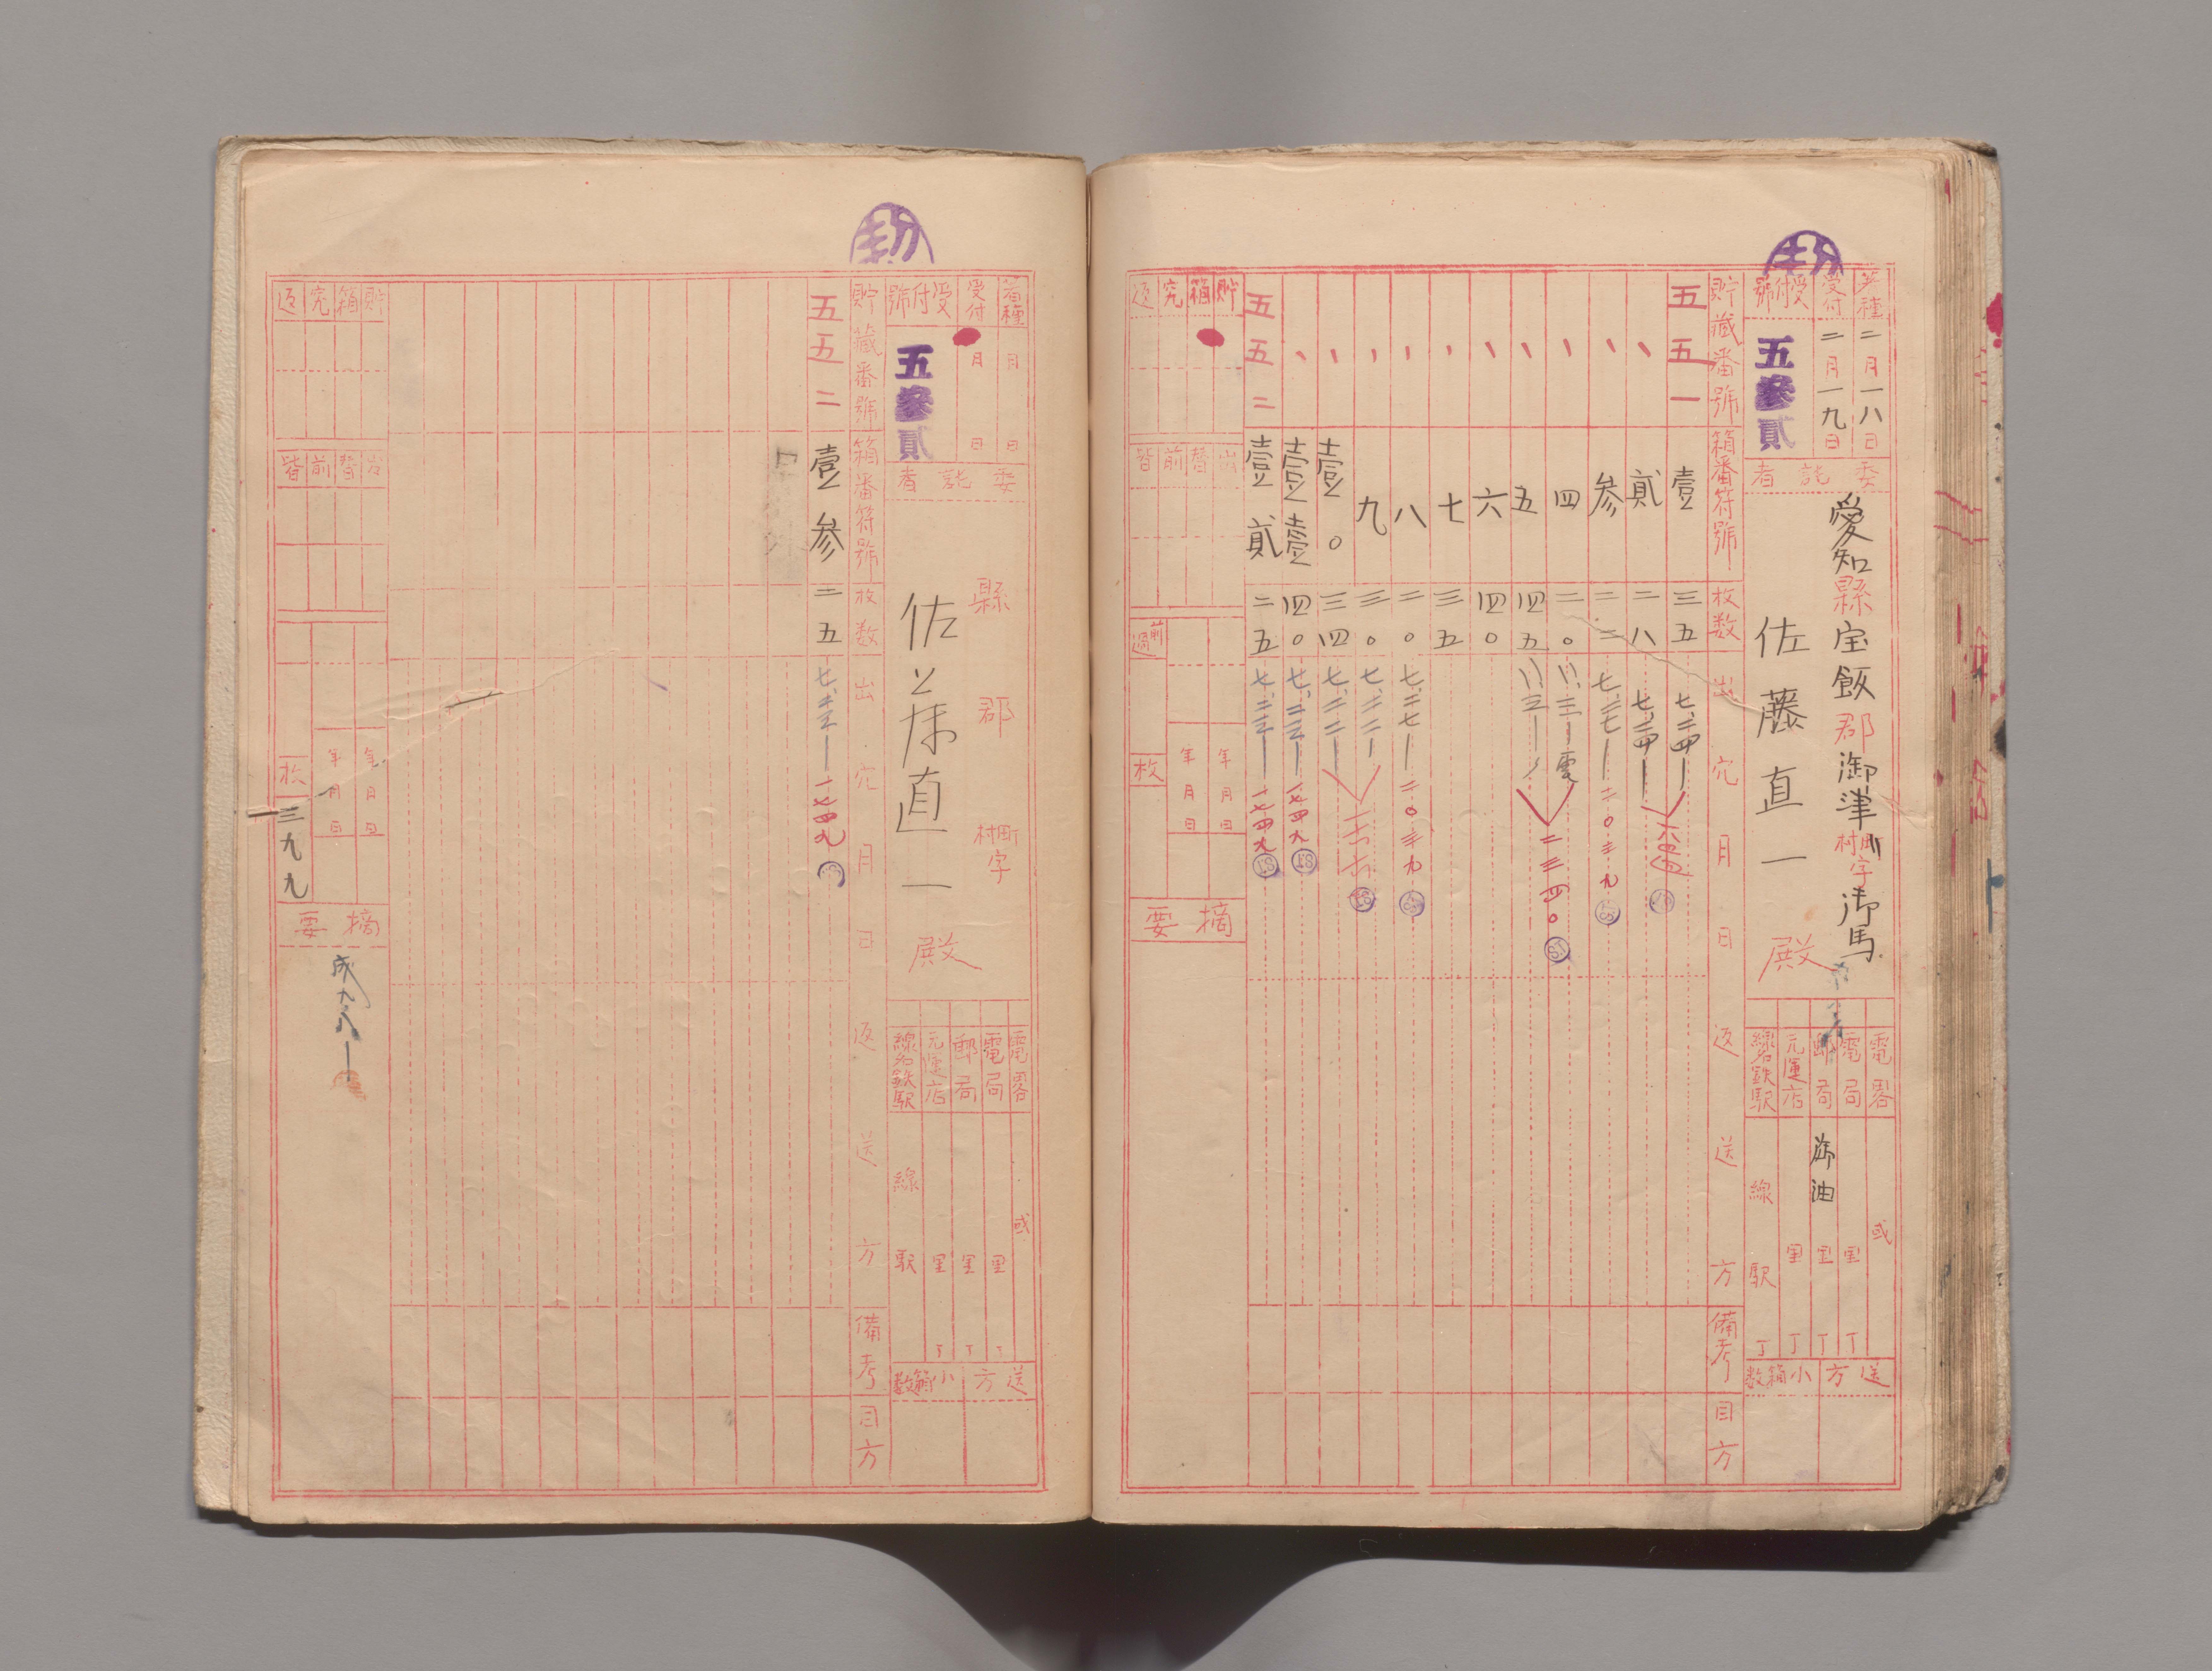 着種 二月一八日
受付 二月一九日
受付號 五參貳
委託者
愛知縣宝飯郡御津町村字御馬
佐藤直一殿
電畧 或
電局 里丁
郵局 御油 里丁
元運店 里丁
線名鉄駅 線 駅 丁
送方
小箱数
貯藏番號
箱番符號
枚数
出穴月日
返送方
備考
目方
五五一 壹 三五 七、二四
〃 貳 二八 七、二四
〃 参 二二 七、二七 二〇三九
〃 四 二〇
〃 五 四五 二三四〇
〃 六 四〇
〃 七 三五
〃 八 二〇 七、二七 二〇三九
〃 九 三〇 七、二二
〃 壹〇 三四 七、二二
〃 壹壹 四〇 七、二三 一七四九
五五二 壹貳 二五 七、二三 一七四九
貯箱穴返
出替前皆
前過
年月日
年月日
枚
摘要
着種 月日
受付 月日
受付號 五參貳
委託者
縣 郡 町村字
佐藤直一殿
電畧 或
電局 里丁
郵局 里丁
元運店 里丁
線名鉄駅 線 駅
送方
小箱数
貯藏番號
箱番符號
枚数
出穴月日
返送方
備考
目方
五五二 壹参 二五 七、二三 一七四九
貯箱穴返
出替前皆
年月日
年月日
枚 三九九
摘要